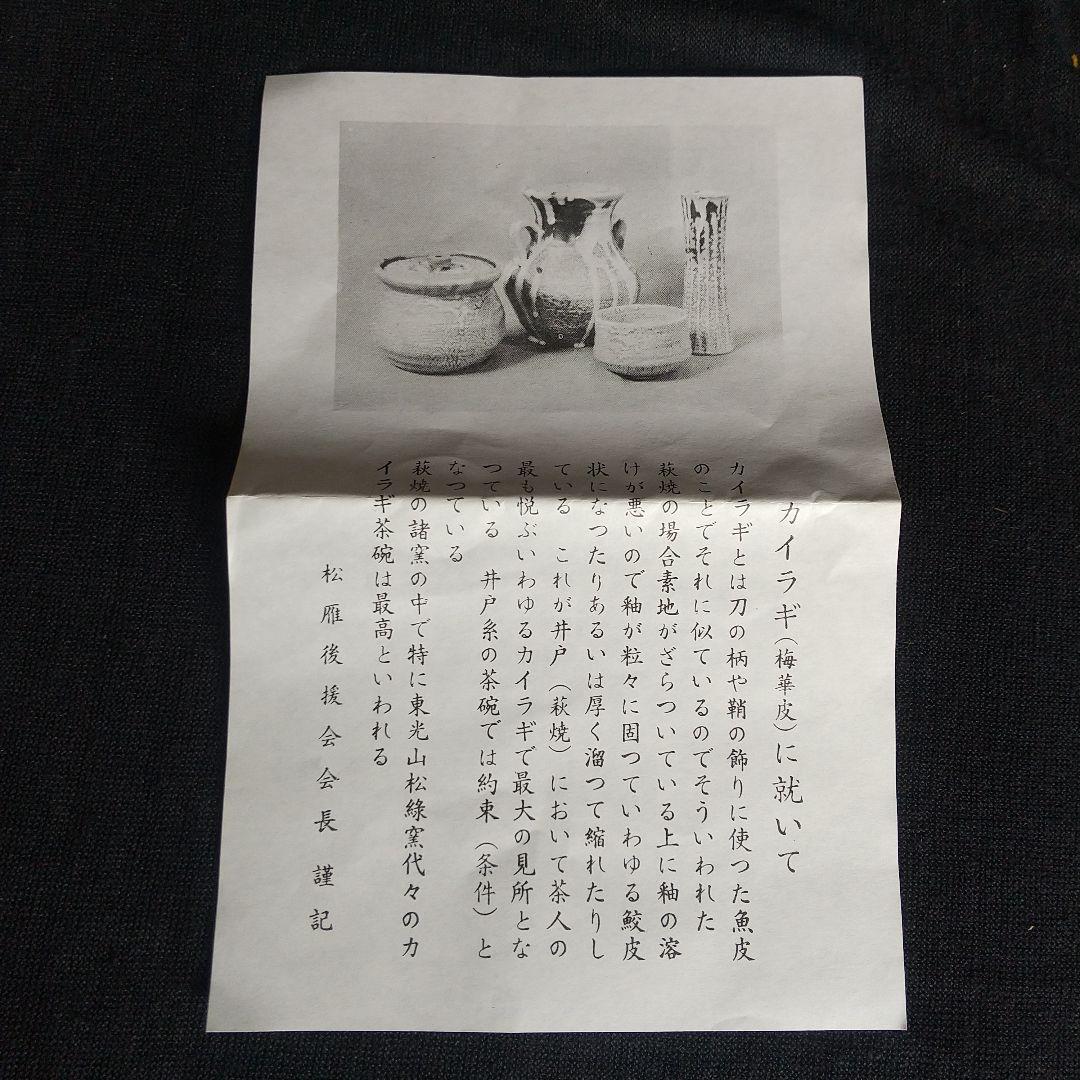 カイラギ（梅華皮）に就いて
カイラギとは刀の柄や鞘の飾りに使つた魚皮
のことでそれに似ているのでそういわれた
萩焼の場合素地がざらついている上に釉の溶
けが悪いので釉が粒々に固つていわゆる鮫皮
状になつたりあるいは厚く溜つて縮れたりし
ている　これが井戸（萩焼）において茶人の
最も悦ぶいわゆるカイラギで最大の見所とな
つている　井戸系の茶碗では約束（条件）と
なつている
萩焼の諸窯の中で特に東光山松綠窯代々のカ
イラギ茶碗は最高といわれる
松雁後援会会長 謹記